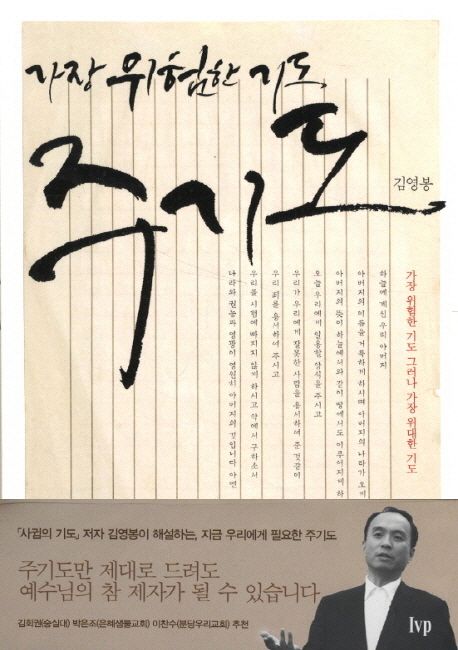 가장 위험한 기도
주기도
김영봉
가장 위험한 기도 그러나 가장 위대한 기도
하늘에 계신 우리 아버지
아버지의 이름을 거룩하게 하시며 아버지의 나라가 오게
아버지의 뜻이 하늘에서와 같이 땅에서도 이루어지게 하
오늘 우리에게 일용할 양식을 주시고
우리가 우리에게 잘못한 사람을 용서하여 준 것같이
우리 죄를 용서하여 주시고
우리를 시험에 빠지지 않게 하시고 악에서 구하소서
나라와 권능과 영광이 영원히 아버지의 것입니다 아멘
「사귐의 기도」 저자 김영봉이 해설하는, 지금 우리에게 필요한 주기도
주기도만 제대로 드려도
예수님의 참 제자가 될 수 있습니다
김회권(숭실대) 박은조(은혜샘물교회) 이찬수(분당우리교회) 추천
Ivp